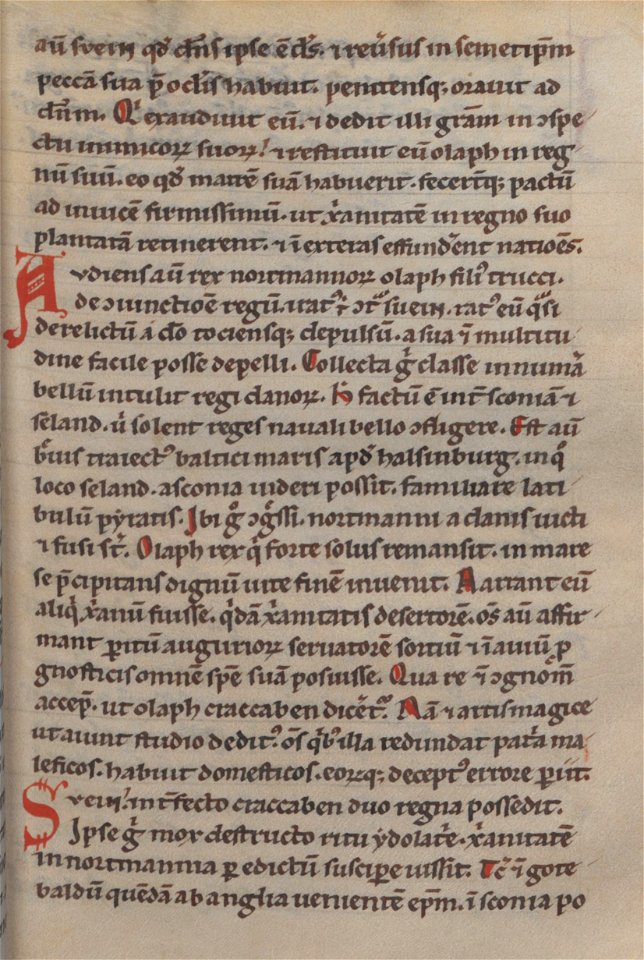 aū svein qđ dn̄s ipse ē ds̄. ⁊ reūsus in semetip̄m
peccā sua p̄ ocłis habuit. penitensq; orauit ad
dn̄m. Q' exaudiuit eū. ⁊ dedit illi grām in ↄspe
ctu inimicoꝝ suoꝝ! ⁊ restituit eū olaph in reg
nū suū. eo qđ matrē suā habuerit. fecerꝉq; pactū
ad inuicē firmissimū. ut xānitatē in regno suo
plantatā retinerent. ⁊ ī exteras effundent natioēs.
Avdiens aū rex nortmannoꝝ olaph filiꝰ trucci.
de ↄiunctiōe regū. iratꝰ ē ↄtͣ suein. ratꝰ eū qͣsi
derelictū a dō tociensq; depulsū. a sua ī multitu
dine facile posse depelli. Collecta g̊ classe innumā
bellū intulit regi danoꝝ. h̄ factū ē int̄ sconiā ⁊
seland. ū solent reges nauali bello ↄfligere. Est aū
bͬuis traiectꝰ baltici maris apđ halsinburg. in qͦ
loco seland. a sconia uideri possit. familiare lati
bulū pyratis. Ibi g̊ ↄg̊ssi. nortmanni a danis uicti
⁊ fusi st̄. Olaph rex qͥ forte solus remansit. in mare
se p̄cipitans dignū uite finē inuenit. Narrant eū
aliqͥ xānū fuisse. qͥdā xānitatis desertorē. om̄s aū affir
mant ꝑitū auguriorꝝ seruatorē sortiū ⁊ ī auiū ꝓ
gnosticis omnē spē suā posuisse. Qua re ⁊ ↄgnom̄
accep̄. ut olaph craccaben dicēt̄ꝰ. Nā ⁊ artis magice
ut aiunt studio deditꝰ. om̄s qͥbꝰ illa redundat patͥa ma
leficos. habuit domesticos. eorꝝq; deceptꝰ errore ꝑiit.
Sveinꝰ. int̄fecto craccaben duo regna possedit.
Ipse g̊ mox destructo ritu ydolatͥe. xānitatē
in nortmannia ꝑ edictū suscipe iussit. Tc̄ ⁊ gote
baldū quendā ab anglia uenientē ep̄m. ī sconia po